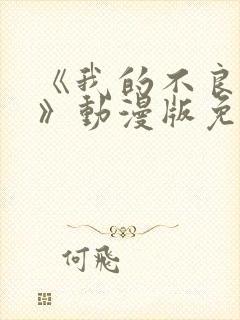 《我的不良
》動漫版免
何飛